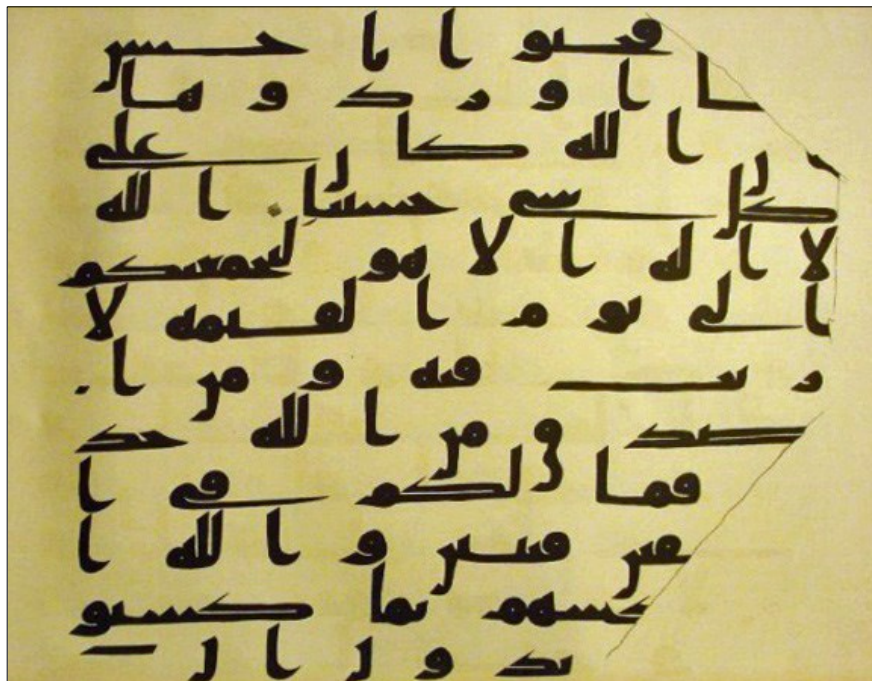 فحيوا باحسن
ا او ردوها
ن الله كان على
كل شي حسيبا الله
لا اله الا هو ليجمعنكم
الى يوم القيمه لا
ريب فيه ومن ا
صدق من الله حد
فما لكم في ا
فقين فئتين والله ا
ركسهم بما كسبو
يدون ان